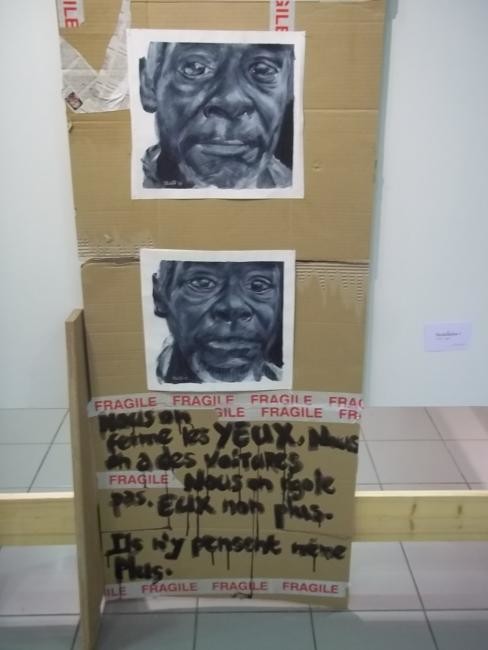 FRAGILE FRAGILE FRAGILE FRAG
GILE FRAGILE FR
Nous on
ferme les YEUX. Nous
on a des voitures
FRAGILE Nous on rigole
pas. EUX non plus.
Ils n'y pensent même
Plus.
ILE FRAGILE FRAGILE FRAGILE